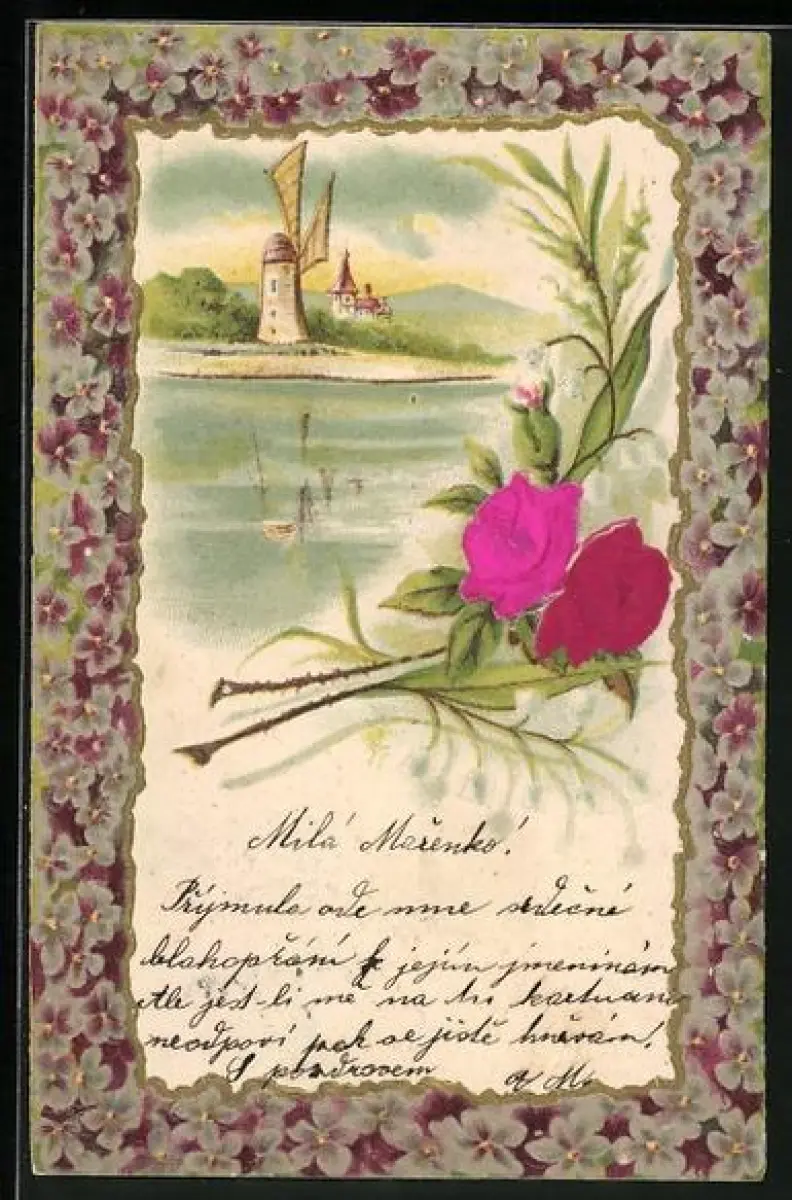 Milá Mařenko!
Přýmula ode mne srdečné
blahopřání k jejím jmeninám
Ale jest-li mě na tu kartu
neodpoví pak se jistě hněvám!
S pozdravem A M.